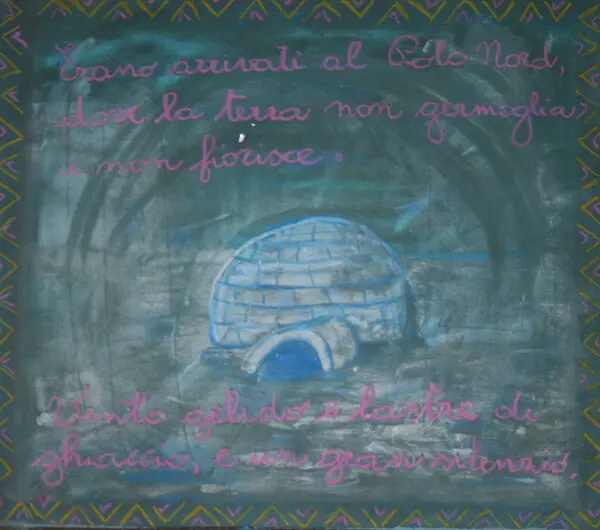 Erano arrivati al Polo Nord,
dove la terra non germoglia
e non fiorisce.
Vento gelido e lastre di
ghiaccio, e un gran silenzio.